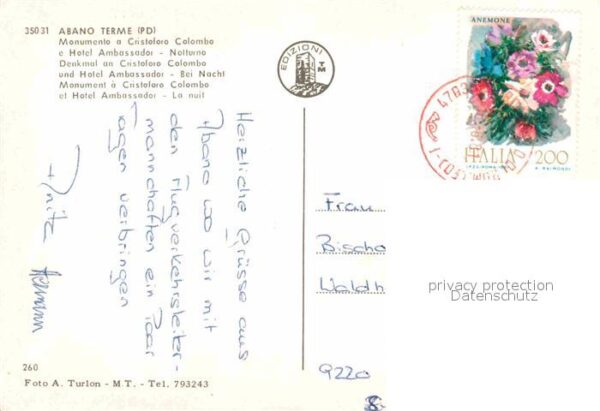 35031 ABANO TERME (PD)
Monumento a Cristoforo Colombo
e Hotel Ambassador - Notturno
Denkmal an Cristoforo Colombo
und Hotel Ambassador - Bei Nacht
Monument à Cristoforo Colombo
et Hotel Ambassador - La nuit
EDIZIONI
TM
ANEMONE
ITALIA 200
Herzliche Grüsse aus
Abano wo wir mit
den Flugverkehrsleiter-
mannschaften ein Paar
Tagen verbringen
Frau
Bischo
Waldh
9220
8
privacy protection
Datenschutz
260
Foto A. Turlon - M.T. - Tel. 793243